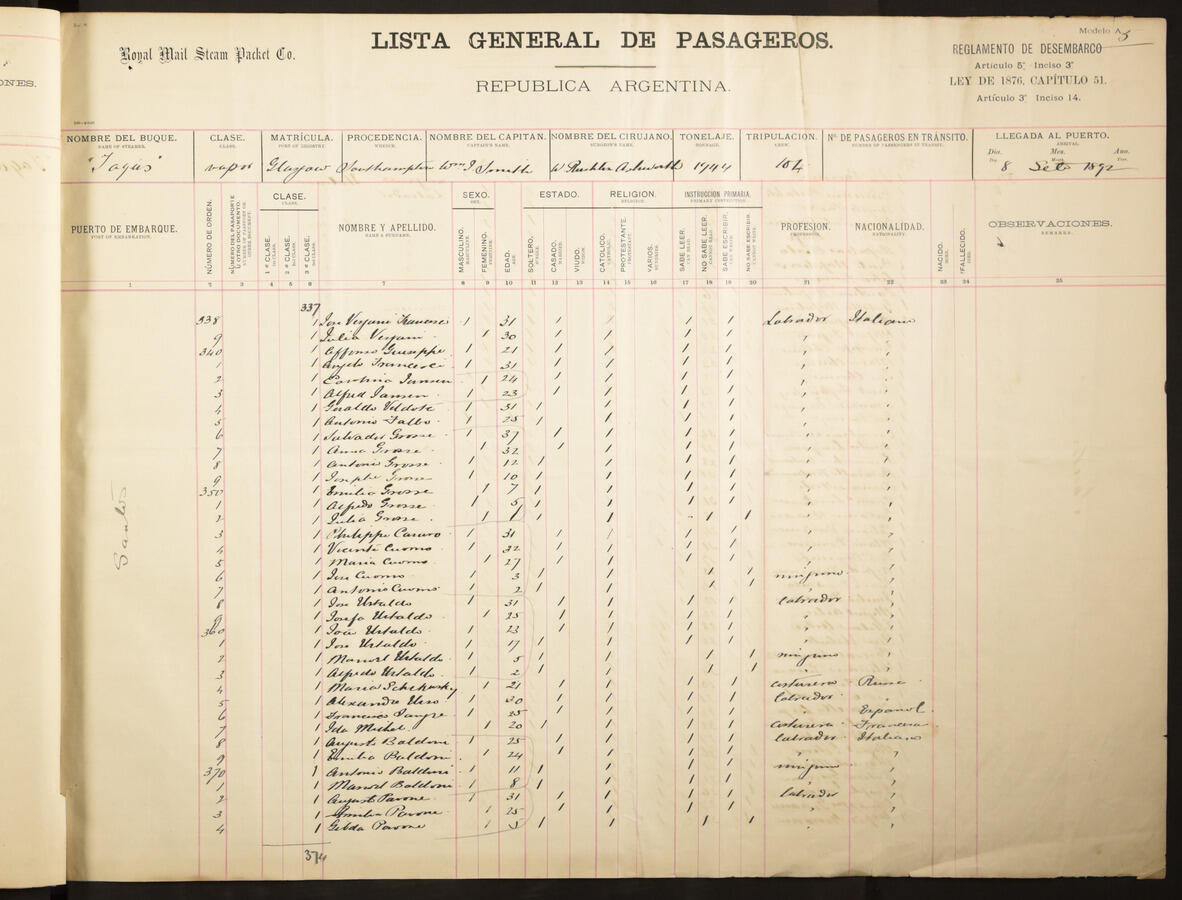 Modelo A 5
Royal Mail Steam Packet Co.
LISTA GENERAL DE PASAGEROS.
REPUBLICA ARGENTINA.
REGLAMENTO DE DESEMBARCO
Artículo 5º Inciso 3º
LEY DE 1876, CAPÍTULO 51.
Artículo 3º Inciso 14.
NOMBRE DEL BUQUE. CLASE. MATRÍCULA. PROCEDENCIA. NOMBRE DEL CAPITAN. NOMBRE DEL CIRUJANO. TONELAJE. TRIPULACIÓN. Nº DE PASAGEROS EN TRÁNSITO. LLEGADA AL PUERTO.
NAME OF STEAMER. CLASS. PORT OF REGISTRY. WHENCE. CAPTAIN'S NAME. SURGEON'S NAME. TONNAGE. CREW. NUMBER OF PASSENGERS IN TRANSIT. ARRIVAL.
Dia. Mes. Ano.
"Tagus" vapor Glasgow Southampton Wm J. Smith Ashworth 1944 104 8 Set. 1892
PUERTO DE EMBARQUE. NÚMERO DE ORDEN. CLASE. NOMBRE Y APELLIDO. SEXO. EDAD. ESTADO. RELIGION. INSTRUCCION PRIMARIA. PROFESION. NACIONALIDAD. NACIDO. FALLECIDO. OBSERVACIONES.
PORT OF EMBARKATION. CLASS. NAME & SURNAME. SEX. AGE. RELIGION. PRIMARY INSTRUCTION. PROFESSION. NATIONALITY. REMARKS.
1ª CLASE. 2ª CLASE. 3ª CLASE. MASCULINO. FEMENINO. SOLTERO. CASADO. VIUDO. CATOLICO. PROTESTANTE. VARIOS. SABE LEER. NO SABE LEER. SABE ESCRIBIR. NO SABE ESCRIBIR.
1 2 3 4 5 6 7 8 9 10 11 12 13 14 15 16 17 18 19 20 21 22 23 24 25
Santos
337
338 1 Jose Vespani Francesco 1 31 1 1 1 1 Labrador Italiano
9 1 Julia Vespani 1 30 1 1 1 1 " "
340 1 Giuseppe 1 21 1 1 1 1 " "
1 1 Angelo Francesco 1 31 1 1 1 1 " "
2 1 Carolina Jansen 1 24 1 1 1 1 " "
3 1 Alfred Jansen 1 23 1 1 1 1 " "
4 1 Geraldo 1 31 1 1 1 1 " "
5 1 Antonio Falbo 1 25 1 1 1 1 " "
6 1 Salvador Grosse 1 37 1 1 1 1 " "
7 1 Anna Grosse 1 32 1 1 1 1 " "
8 1 Antonio Grosse 1 12 1 1 1 1 " "
9 1 Josephe Grosse 1 10 1 1 1 1 " "
350 1 Emilia Grosse 1 7 1 1 1 1 " "
1 1 Alfredo Grosse 1 5 1 1 1 1 " "
2 1 Julia Grosse 1 1 1 1 1 1 " "
3 1 Philippe Caruso 1 31 1 1 1 1 " "
4 1 Vicente Cuomo 1 32 1 1 1 1 " "
5 1 Maria Cuomo 1 27 1 1 1 1 " "
6 1 Jose Cuomo 1 3 1 1 1 1 ninguno "
7 1 Antonio Cuomo 1 2 1 1 1 1 " "
8 1 Jose Ustaldo 1 31 1 1 1 1 labrador "
9 1 Josefa Ustaldo 1 25 1 1 1 1 " "
360 1 Jose Ustaldo 1 23 1 1 1 1 " "
1 1 Jose Ustaldo 1 17 1 1 1 1 " "
2 1 Manoel Ustaldo 1 5 1 1 1 1 ninguno "
3 1 Alfredo Ustaldo 1 2 1 1 1 1 " "
4 1 Maria 1 21 1 1 1 1 costurera Russe
5 1 Alexandre 1 30 1 1 1 1 labrador "
6 1 Francisco 1 25 1 1 1 1 " Español
7 1 Ida Michel 1 20 1 1 1 1 costurera Francesa
8 1 Augusto Baldoni 1 25 1 1 1 1 labrador Italiano
9 1 Emilia Baldoni 1 24 1 1 1 1 " "
370 1 Antonio Baldoni 1 11 1 1 1 1 ninguno "
1 1 Manoel Baldoni 1 8 1 1 1 1 " "
2 1 August Pavone 1 31 1 1 1 1 labrador "
3 1 Emilia Pavone 1 25 1 1 1 1 " "
4 1 Gilda Pavone 1 5 1 1 1 1 " "
374